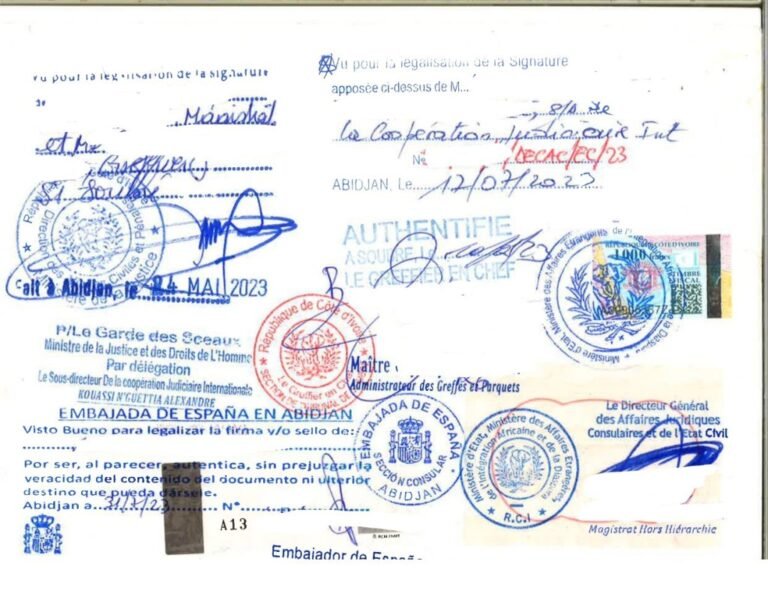 Vu pour la légalisation de la signature
de
et Me
Fait à Abidjan, le 24 MAI 2023
République
Direction
Civiles et Pénales
de la Justice
P/Le Garde des Sceaux
Ministre de la Justice et des Droits de L'Homme
Par délégation
Le Sous-directeur De la coopération Judiciaire Internationale
KOUASSI N'GUETTIA ALEXANDRE
EMBAJADA DE ESPAÑA EN ABIDJAN
Visto Bueno para legalizar la firma y/o sello de:
Por ser, al parecer autentica, sin prejuzgar la
veracidad del contenido del documento ni ulterior
destino que pueda dársele.
Abidjan a 31/7/23 N°
A13
Embajador de España
Vu pour la légalisation de la Signature
apposée ci-dessus de M...
S/D de
la Coopération Judiciaire Int
N° DECAC/EC/23
ABIDJAN, Le 12/07/2023
AUTHENTIFIE
A SOUBRE LE
LE GREFFIER EN CHEF
République de Côte d'Ivoire
Le Greffier en Chef
SECTION DE TRIBUNAL DE
Maître
Administrateur des Greffes et Parquets
Ministère d'Etat, Ministère des Affaires Etrangères, de l'Intégration Africaine et de la Diaspora
REPUBLIQUE DE CÔTE D'IVOIRE
1000
TIMBRE
FISCAL
EMBAJADA DE ESPAÑA
SECCIÓN CONSULAR
ABIDJAN
Ministère d'Etat, Ministère des Affaires Etrangères,
de l'Intégration Africaine et de la Diaspora
R.C.I
Le Directeur Général
des Affaires Juridiques
Consulaires et de l'Etat Civil
Magistrat Hors Hiérarchie